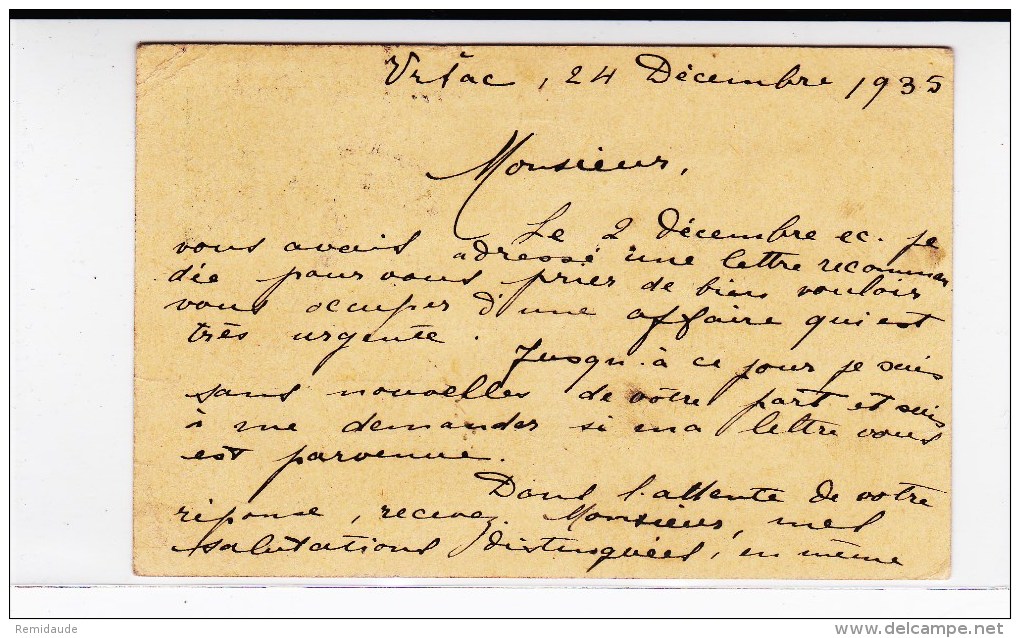 Urtac, 24 Décembre 1935
Monsieur,
Le 2 décembre ec. je
vous avais adressé une lettre recomman-
dée pour vous prier de bien vouloir
vous occuper d'une affaire qui est
très urgente.
Jusqu'à ce jour je suis
sans nouvelles de votre part et suis
à me demander si ma lettre vous
est parvenue.
Dans l'attente de votre
réponse, recevez Monsieur, mes
salutations distinguées, en même
Remidaude
www.delcampe.net